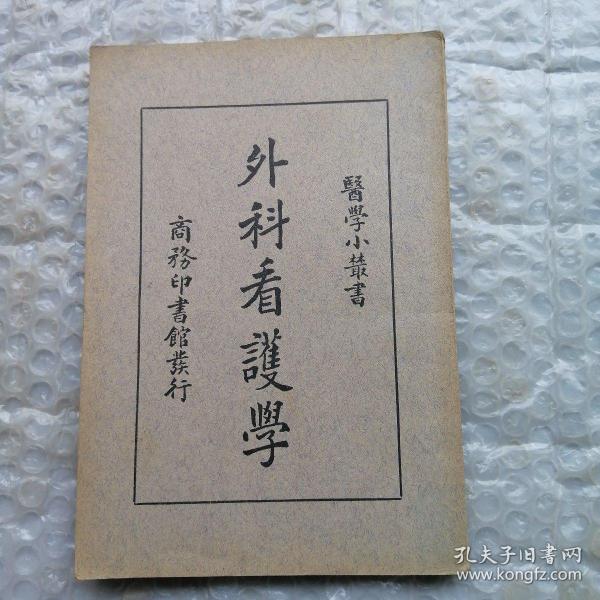 醫學小叢書
外科看護學
商務印書館發行
孔夫子旧書网
www.kongfz.com